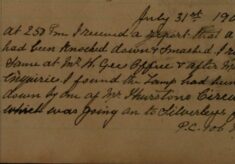 July 31st 190
at 2.50 Pm I received a report that a
had been Knocked down & Smashed I
Same at Mr H. Gee Office & after
Enquiries I found the Lamp had been
down by one of Mr Thurstons Circus
which was going on to Silverleys
P.C. 706